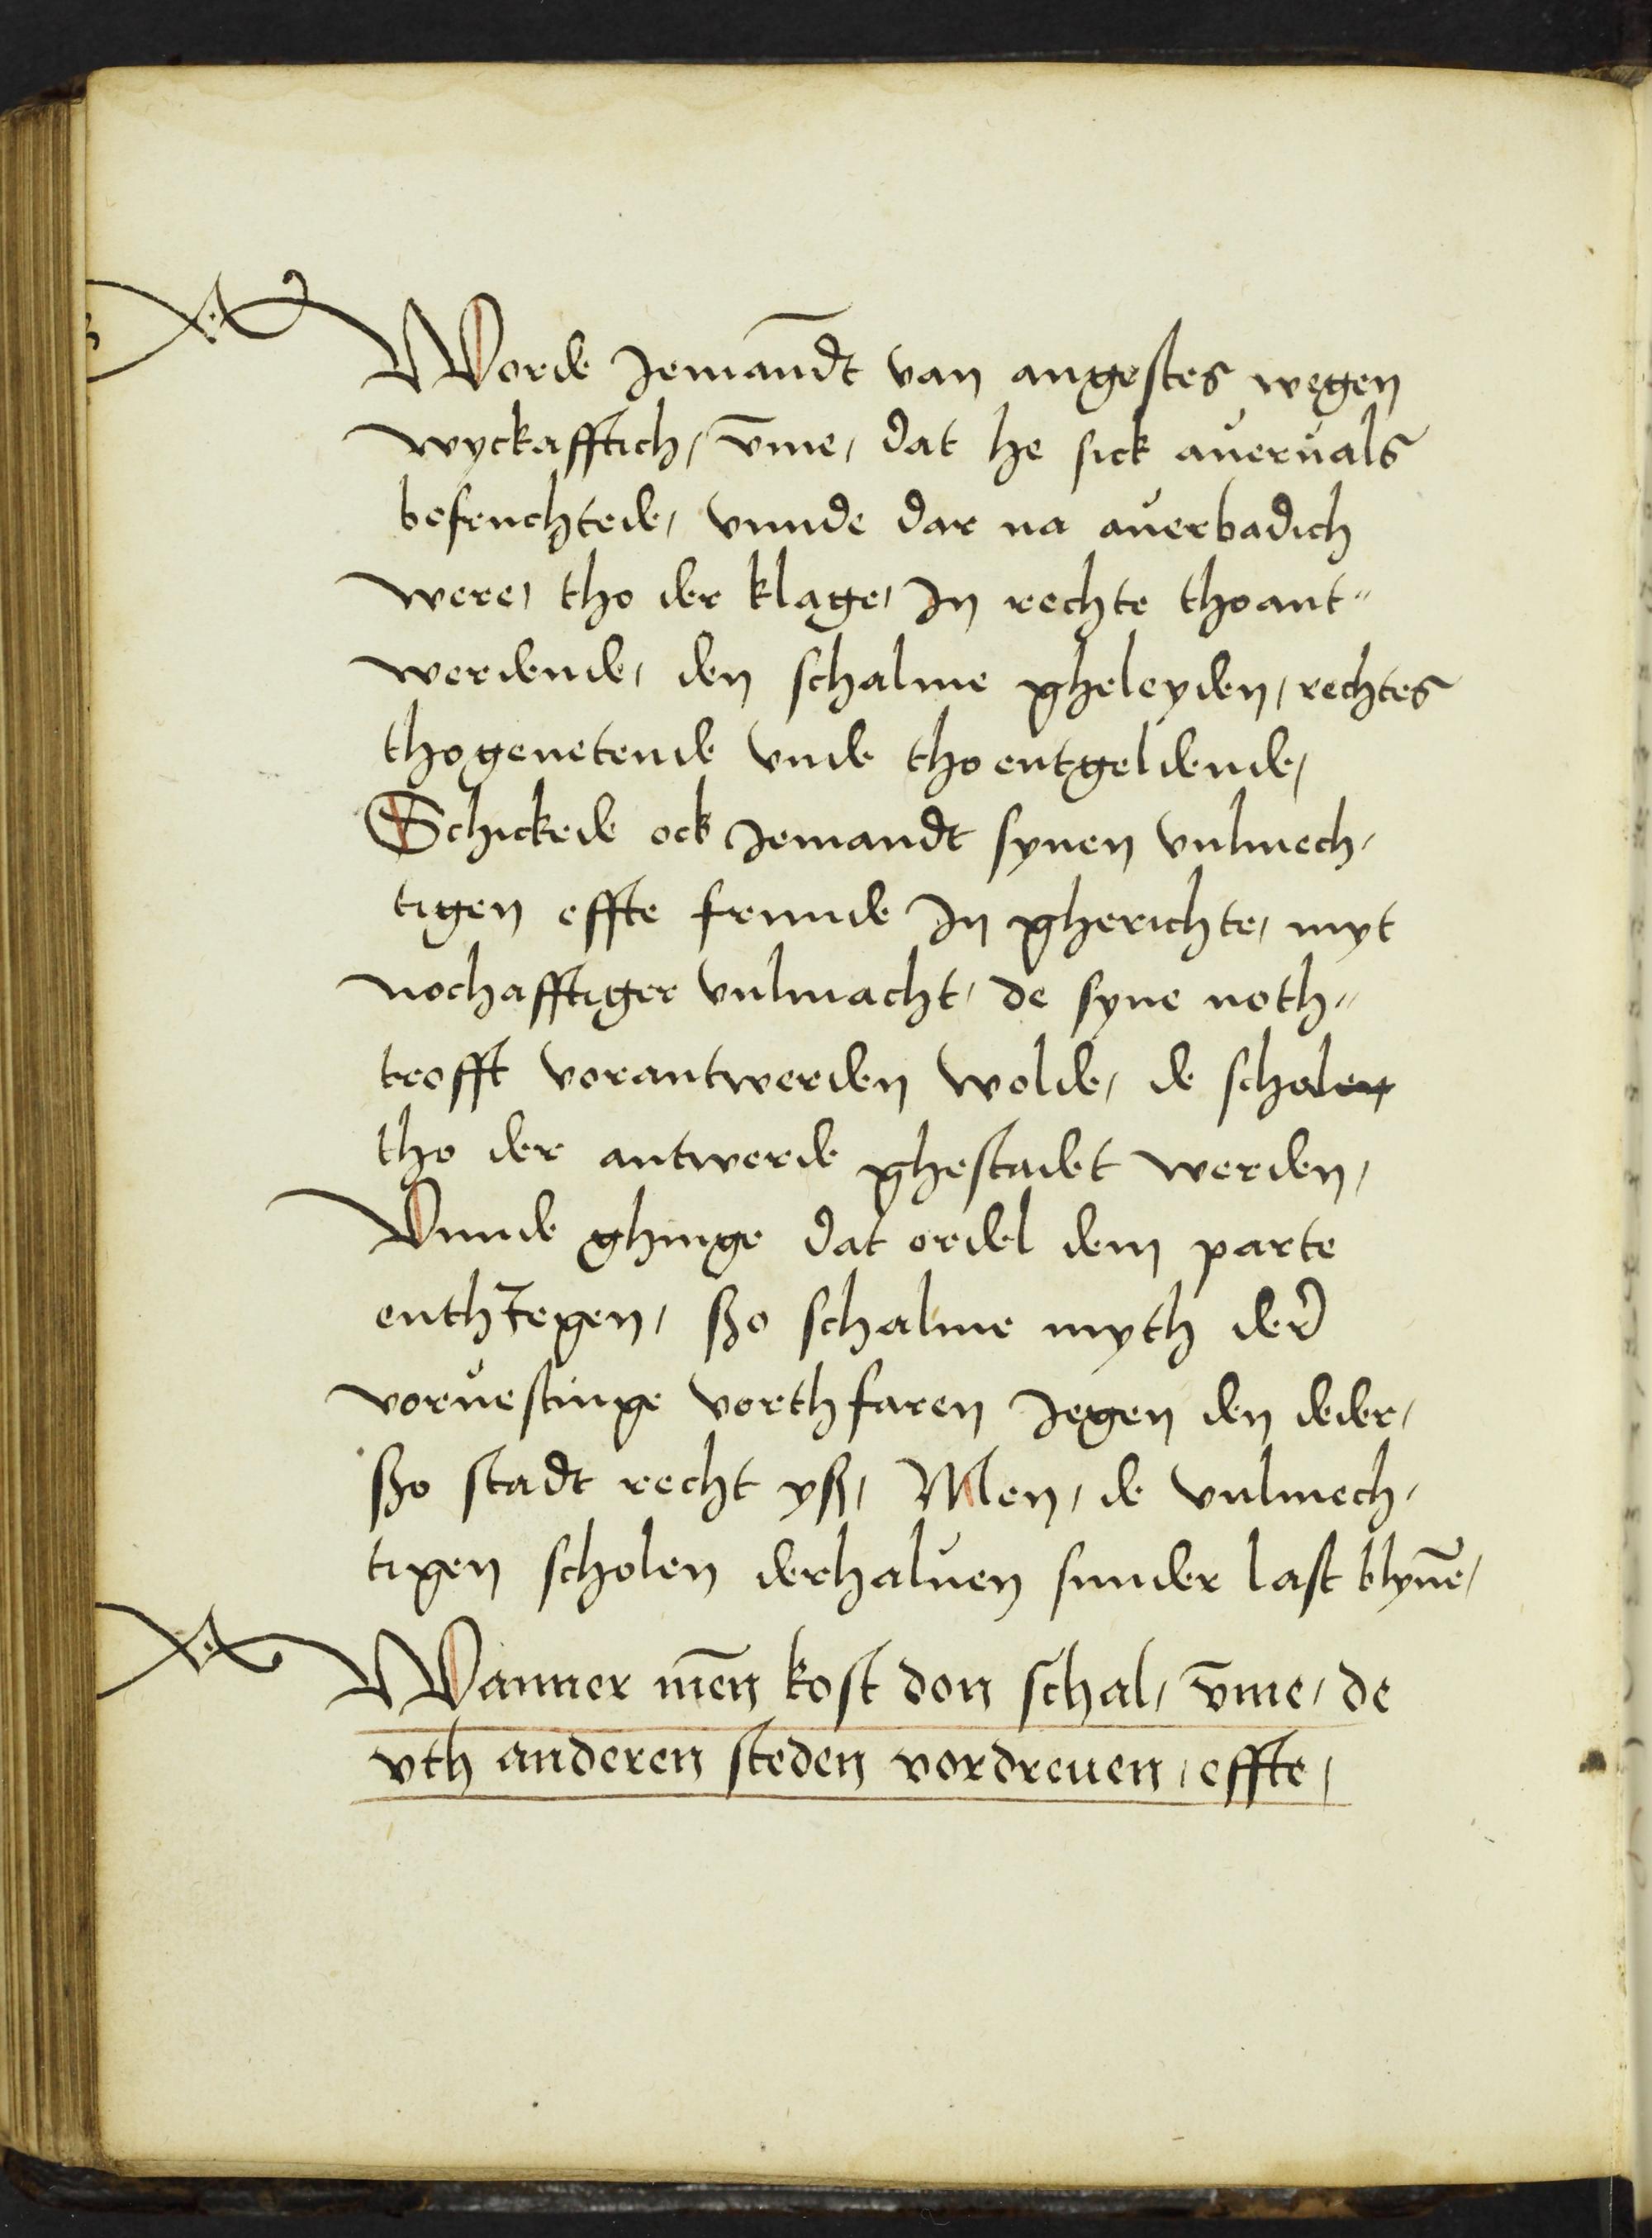 Worde Jemandt van angestes wegen
wyckafftich, v̄me, dat he sick auerũals
befruchtede, vnnde dar na aũerbadich
were, tho der klage, In rechte thoant⸗
werdende, den schalme gheleyden, rechtes
thogenetende vnde tho entgeldende,
Schickede ock Jemandt synen vulmech⸗
tigen effte frunde In gherichte, myt
nochafftiger vulmacht, de syne noth⸗
trofft vorantwerden wolde, de scholen
tho der antwerde ghestadet werden,
Vnnde ghinge dat ordel dem parte
enthJegen, ßo schalme myth der
vorũestinge vorthfaren Jegen den deder,
ßo stadt recht yß, Men, de vulmech⸗
tigen scholen derhalũen sunder last blyuē,
Wanner mēn kost don schal, v̄me, de
vth anderen steden vordreuen, effte,